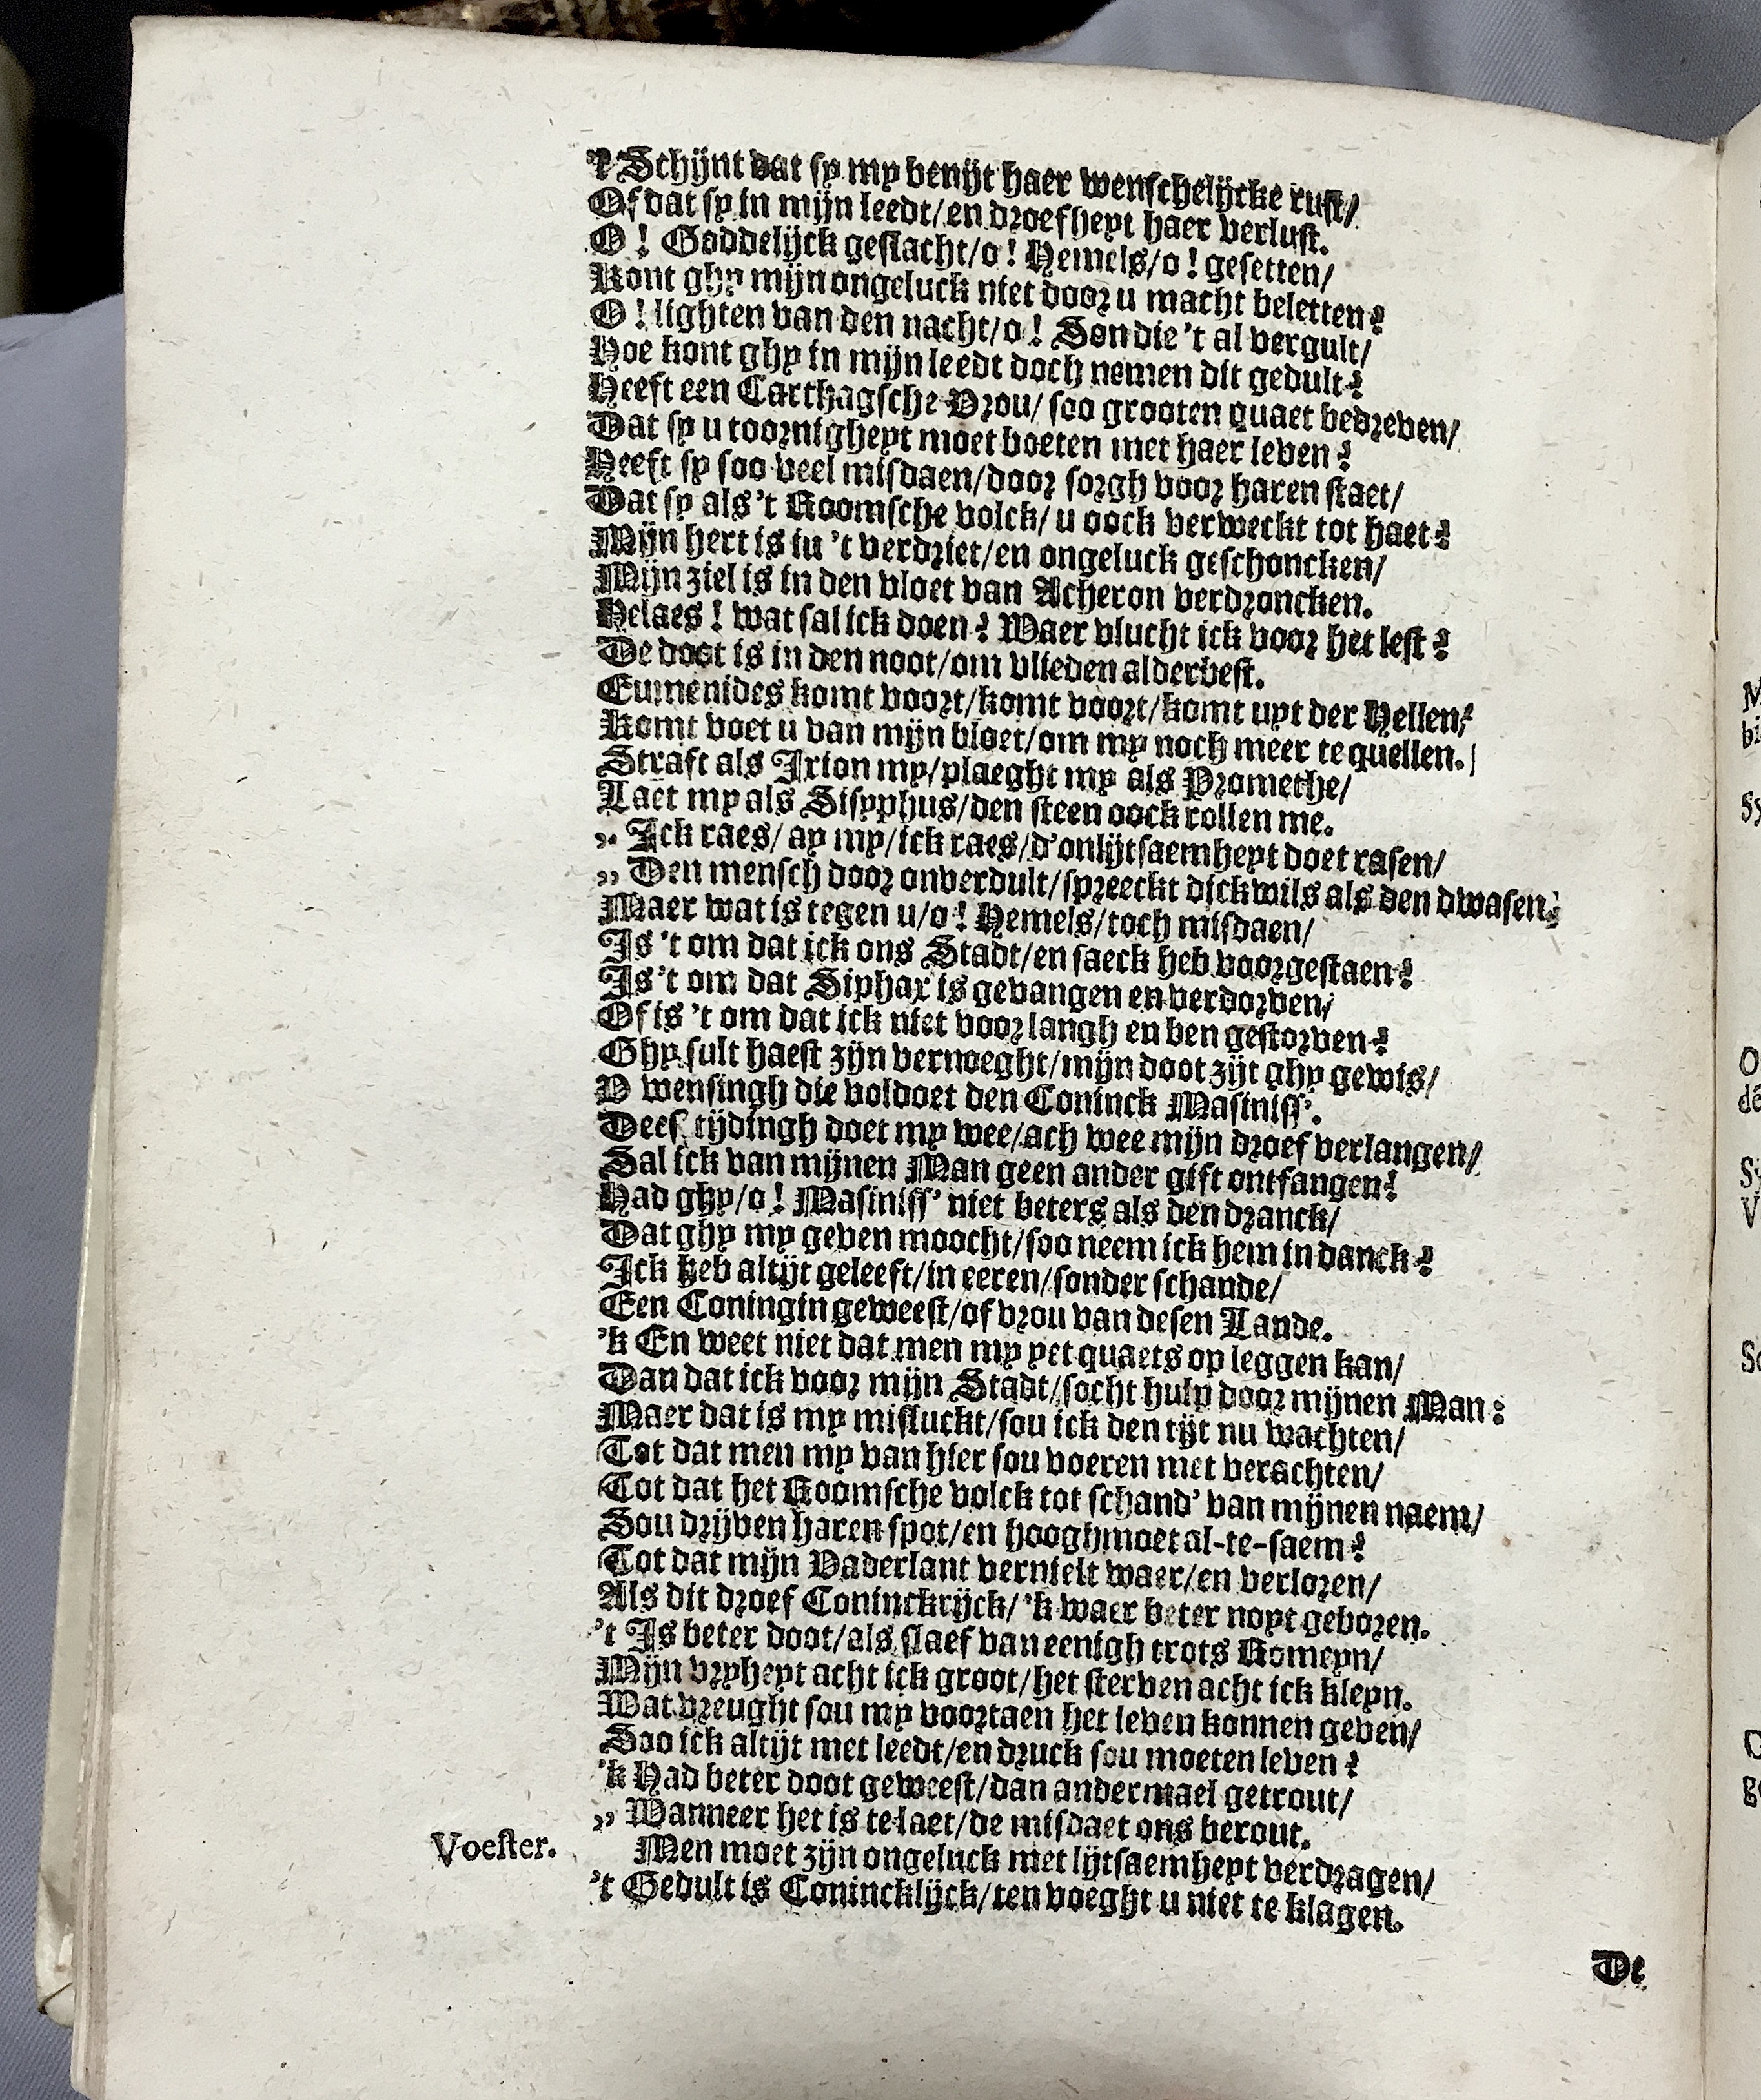 't Schijnt dat sy my benijt haer wenschelijcke rust/
Of dat sy in mijn leedt/en droefheyt haer verlust.
O! Goddelijck geslacht/o! Hemels/o! gesetten/
Kont ghy mijn ongeluck niet door u macht beletten?
O! lighten van den nacht/o! Son die 't al vergult/
Hoe kont ghy in mijn leedt doch nemen dit gedult?
Heeft een Carthagsche Vrou/ soo grooten quaet bedreven/
Dat sy u toornigheyt moet boeten met haer leven?
Heeft sy soo veel misdaen/door sorgh voor haren staet/
Dat sy als 't Roomsche volck/ u oock verweckt tot haet?
Mijn hert is in 't verdriet/en ongeluck geschoncken/
Mijn ziel is in den vloet van Acheron verdroncken.
Helaes! wat sal ick doen? Waer vlucht ick voor het lest?
De doot is in den noot/om vlieden alderbest.
Eumenides komt voort/komt voort/komt uyt der Hellen/
Komt voet u van mijn bloet/om my noch meer te quellen.
Straft als Ixion my/plaeght my als Promethe/
Laet my als Sisyphus/den steen oock rollen me.
„ Ick raes/ ay my/ick raes/d'onlijtsaemheyt doet rasen/
„ Den mensch door onverdult/spreeckt dickwils als den dwasen:
Maer wat is tegen u/o! Hemels/toch misdaen/
Is 't om dat ick ons Stadt/en saeck heb voorgestaen?
Is 't om dat Siphax is gevangen en verdorven/
Of is 't om dat ick niet voor langh en ben gestorven?
Ghy sult haest zijn vernoeght/mijn doot zijt ghy gewis/
V wensingh die voldoet den Coninck Masiniss'.
Dees tijdingh doet my wee/ach wee mijn droef verlangen/
Sal ick van mijnen Man geen ander gift ontfangen?
Had ghy/o! Masiniss' niet beters als den dranck/
Dat ghy my geven moocht/soo neem ick hem in danck?
Ick heb altijt geleeft/in eeren/sonder schande/
Een Coningin geweest/of vrou van desen Lande.
'k En weet niet dat men my yet quaets op leggen kan/
Dan dat ick voor mijn Stadt/socht hulp door mijnen Man:
Maer dat is my misluckt/sou ick den tijt nu wachten/
Tot dat men my van hier sou voeren met verachten/
Tot dat het Roomsche volck tot schand' van mijnen naem/
Sou drijven haren spot/en hooghmoet al-te-saem?
Tot dat mijn Vaderlant vernielt waer/en verloren/
Als dit droef Coninckrijck/ 'k waer beter noyt geboren.
't Is beter doot/als slaef van eenigh trots Romeyn/
Mijn vryheyt acht ick groot/het sterven acht ick kleyn.
Wat vreught sou my voortaen het leven konnen geven/
Soo ick altijt met leedt/en druck sou moeten leven?
'k Had beter doot geweest/dan andermael getrout/
„ Wanneer het is te laet/de misdaet ons berout.
Voester. Men moet zijn ongeluck met lijtsaemheyt verdragen/
't Gedult is Conincklijck/ten voeght u niet te klagen.
De